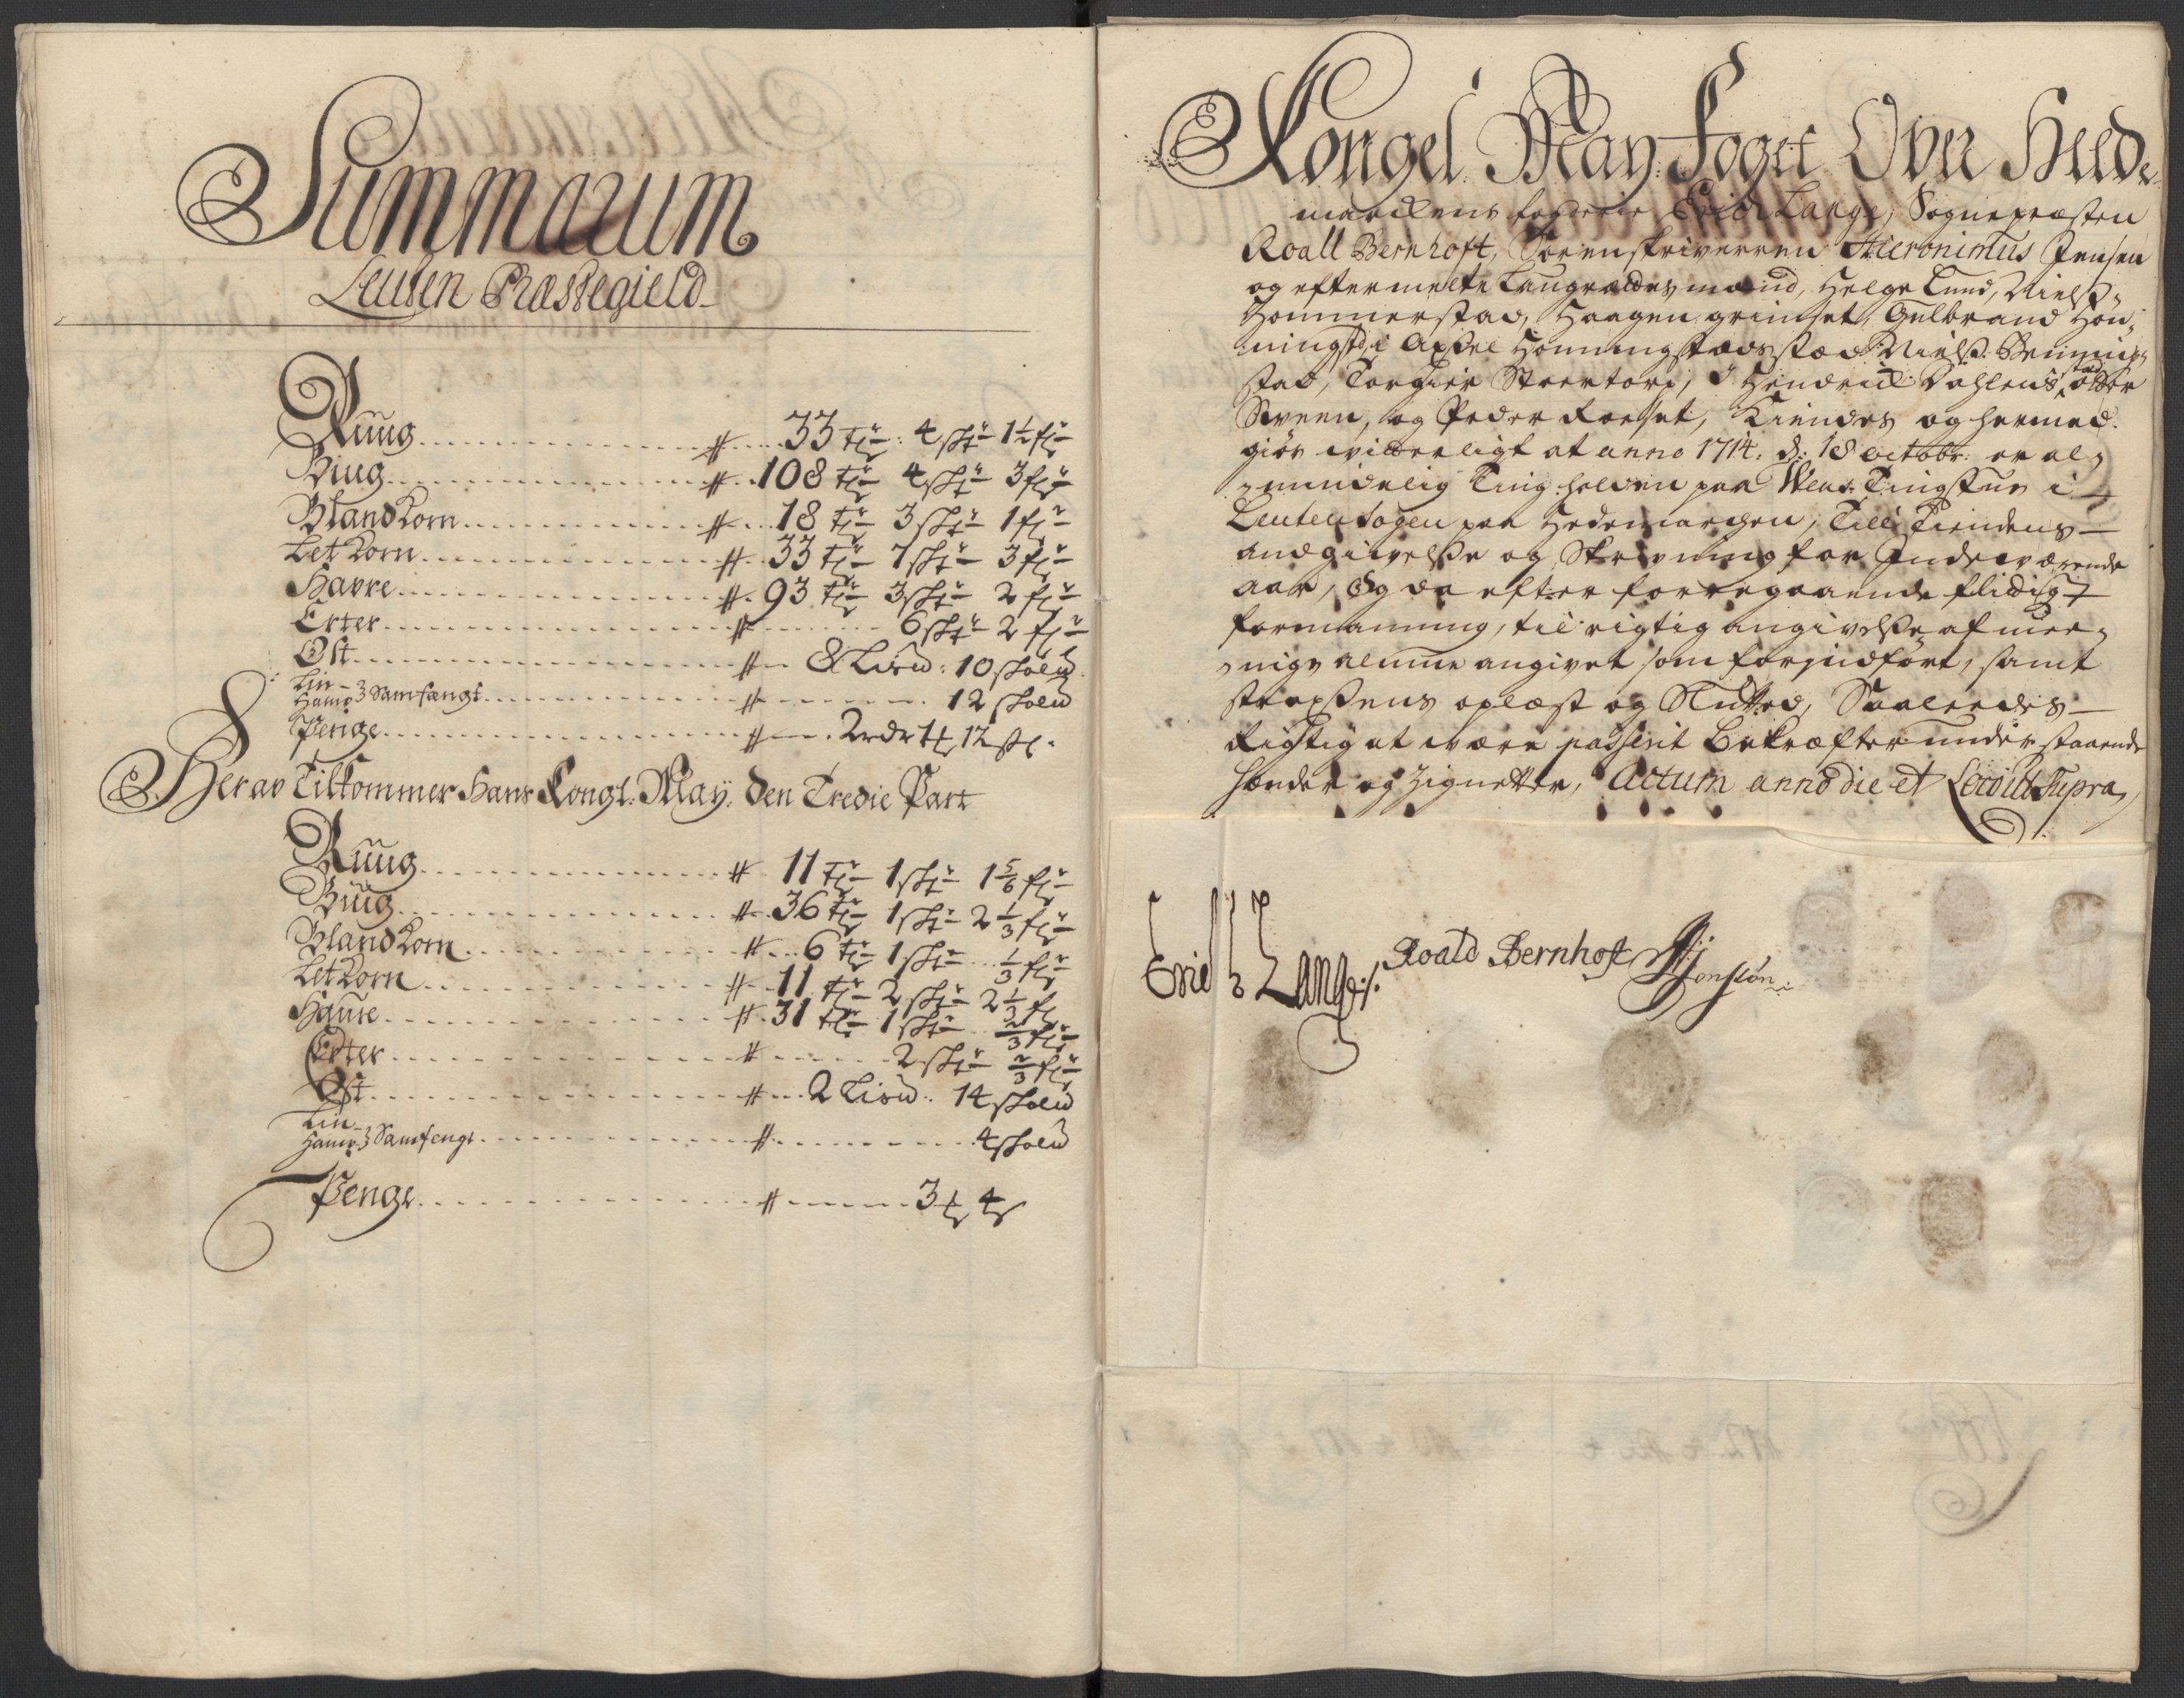 Summarum
Leuten Præstegield
Ruug # 33 tr: 4 skr 1½ fr
Biug # 108 tr 4 skr 3 fr
Bland Korn # 18 tr 3 skr 1 fr
Let Korn # 33 tr 7 skr 3 fr
Havre # 93 tr 3 skr 2 fr
Erter # 6 skr 2 fr
Ost # 8 Lisd: 10 skald
Lin-
Hamp } Samfængt # 12 skald
Penge # 2 rdr 1 # 12 sk.
Herav Tilkommer Hans Kongl: May: den Tredie Part
Ruug # 11 tr 1 skr 1 5/6 fr
Biug # 36 tr 1 skr 2 1/3 fr
Bland Korn # 6 tr 1 skr 1/3 fr
Let Korn # 11 tr 2 skr 2 1/3 f
Haure # 31 tr 1 skr 2/3 fr
Erter # 2 skr 2/3 fr
Ost # 2 Lisd: 14 skald
Lin-
Hamp } Samfengt # 4 skald
Penge # 3 # 4 s
Kongel May: Foget Over Heed-
marckens fogderie Erich Lange, Sognepræsten
Roall Bernhoft, Sorenskriverren Hieronimus Jensen
og eftermelte Laugrættesmænd, Helge Lund, Niels
Hommerstad, Haagen grimset, Gulbrand Hon-
ningstd, Axsel Honningstadsstad Niels
stad, Torgier Stoertorp, Hendrich Dahlens stad
Sveen, og Peder Roeset, Kiendes og hermed
giør witterligt at anno 1714. d: 18 octobr: er al-
mindelig Ting holden paa Tingstue i
Leuten sogen paa Hedemarchen, Till Tiendens
angivelse og Skrivning for Indeværende
aar, Og da efter forregaaende flidig
formaning, til rigtig angivelse af mee-
nige almue angivet som forindført, samt
straxens oplæst og Sluttet, Saaleedes
Rigtig at være passerit Bekræfter under staaende
hænder og Zignetter, Actum anno die et Loco ut Supra
Erich Lange.
Roald Bernhoft
HJonssøn